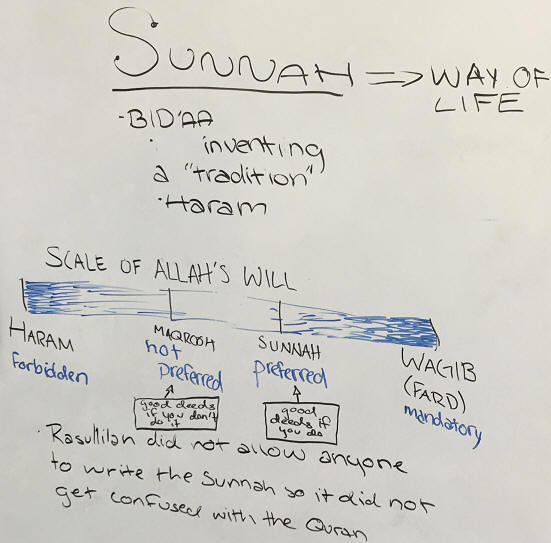 SUNNAH => WAY OF
LIFE
- BID'AA
· inventing
a "tradition"
· Haram
SCALE OF ALLAH'S WILL
HARAM
Forbidden
MAQROOH
not
preferred
good deeds
if you don't
do it
SUNNAH
preferred
good
deeds if
you do
WAGIB
(FARD)
mandatory
· Rasullilah did not allow anyone
to write the Sunnah so it did not
get confused with the Quran